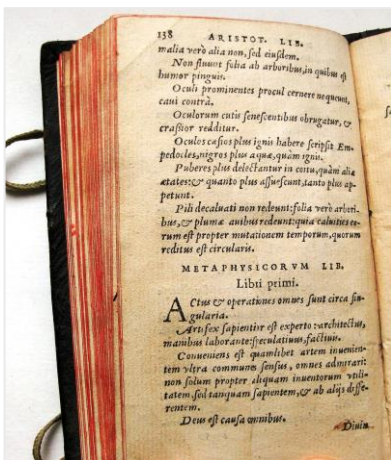 138 ARISTOT. LIB.
malia verò alia non, sed eiusdem.
Non fluunt folia ab arboribus, in quibus est
humor pinguis.
Oculi prominentes procul cernere nequeunt,
caui contrà.
Oculorum cutis senescentibus obrugatur, &
crassior redditur.
Oculos cæsios plus ignis habere scripsit Em-
pedocles, nigros plus aquæ, quàm ignis.
Puberes plus delectantur in coitu, quàm aliæ
ætates: & quanto plus assuescunt, tanto plus ap-
petunt.
Pili decaluati non redeunt: folia verò arbori-
bus, & plumæ auibus redeunt: quia caluities eo-
rum est propter mutationem temporum, quorum
reditus est circularis.
METAPHYSICORVM LIB.
Libri primi.
ACtus & operationes omnes sunt circa sin-
gularia.
Artifex sapientior est experto: architectus,
manibus laborante: speculatiuus, factiuus.
Conueniens est quamlibet artem inuenien-
tem vltra communes sensus, omnes admirari:
non solum propter aliquam inuentorum vtili-
tatem, sed tanquam sapientem, & ab alijs diffe-
rentem.
Deus est causa omnibus.
Diuin